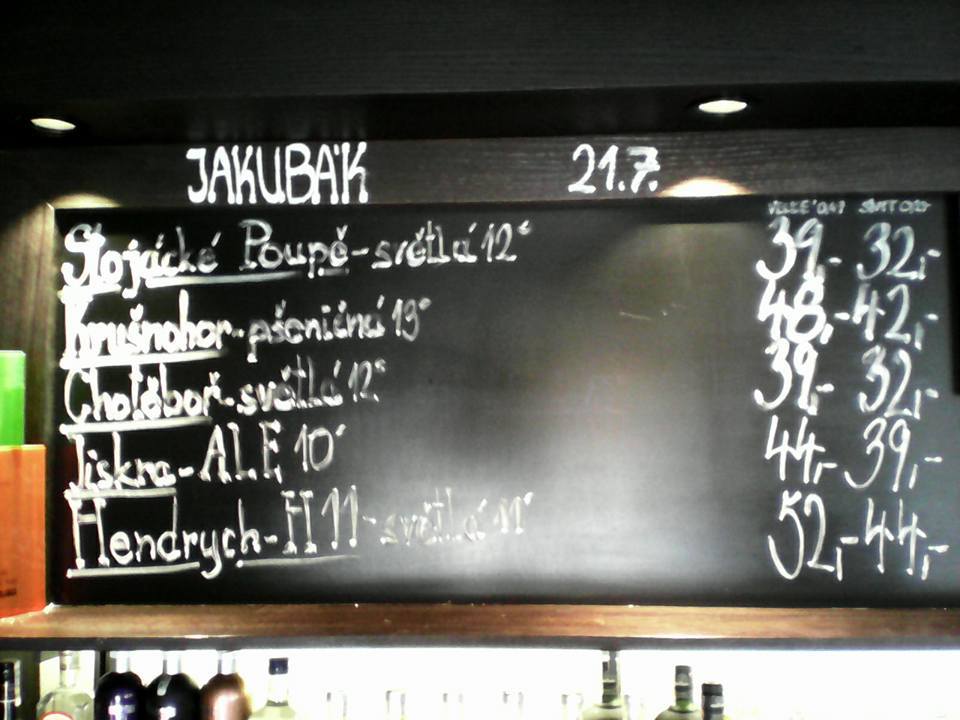 JAKUBÁK 21.7.
Stojácké Poupě - světlá 12° 39,- 32,-
Krušnohor - pšeničná 13° 48,- 42,-
Chotěboř - světlá 12° 39,- 32,-
Jiskra - ALE 10° 44,- 39,-
Hendrych - H11 - světlá 11° 52,- 44,-